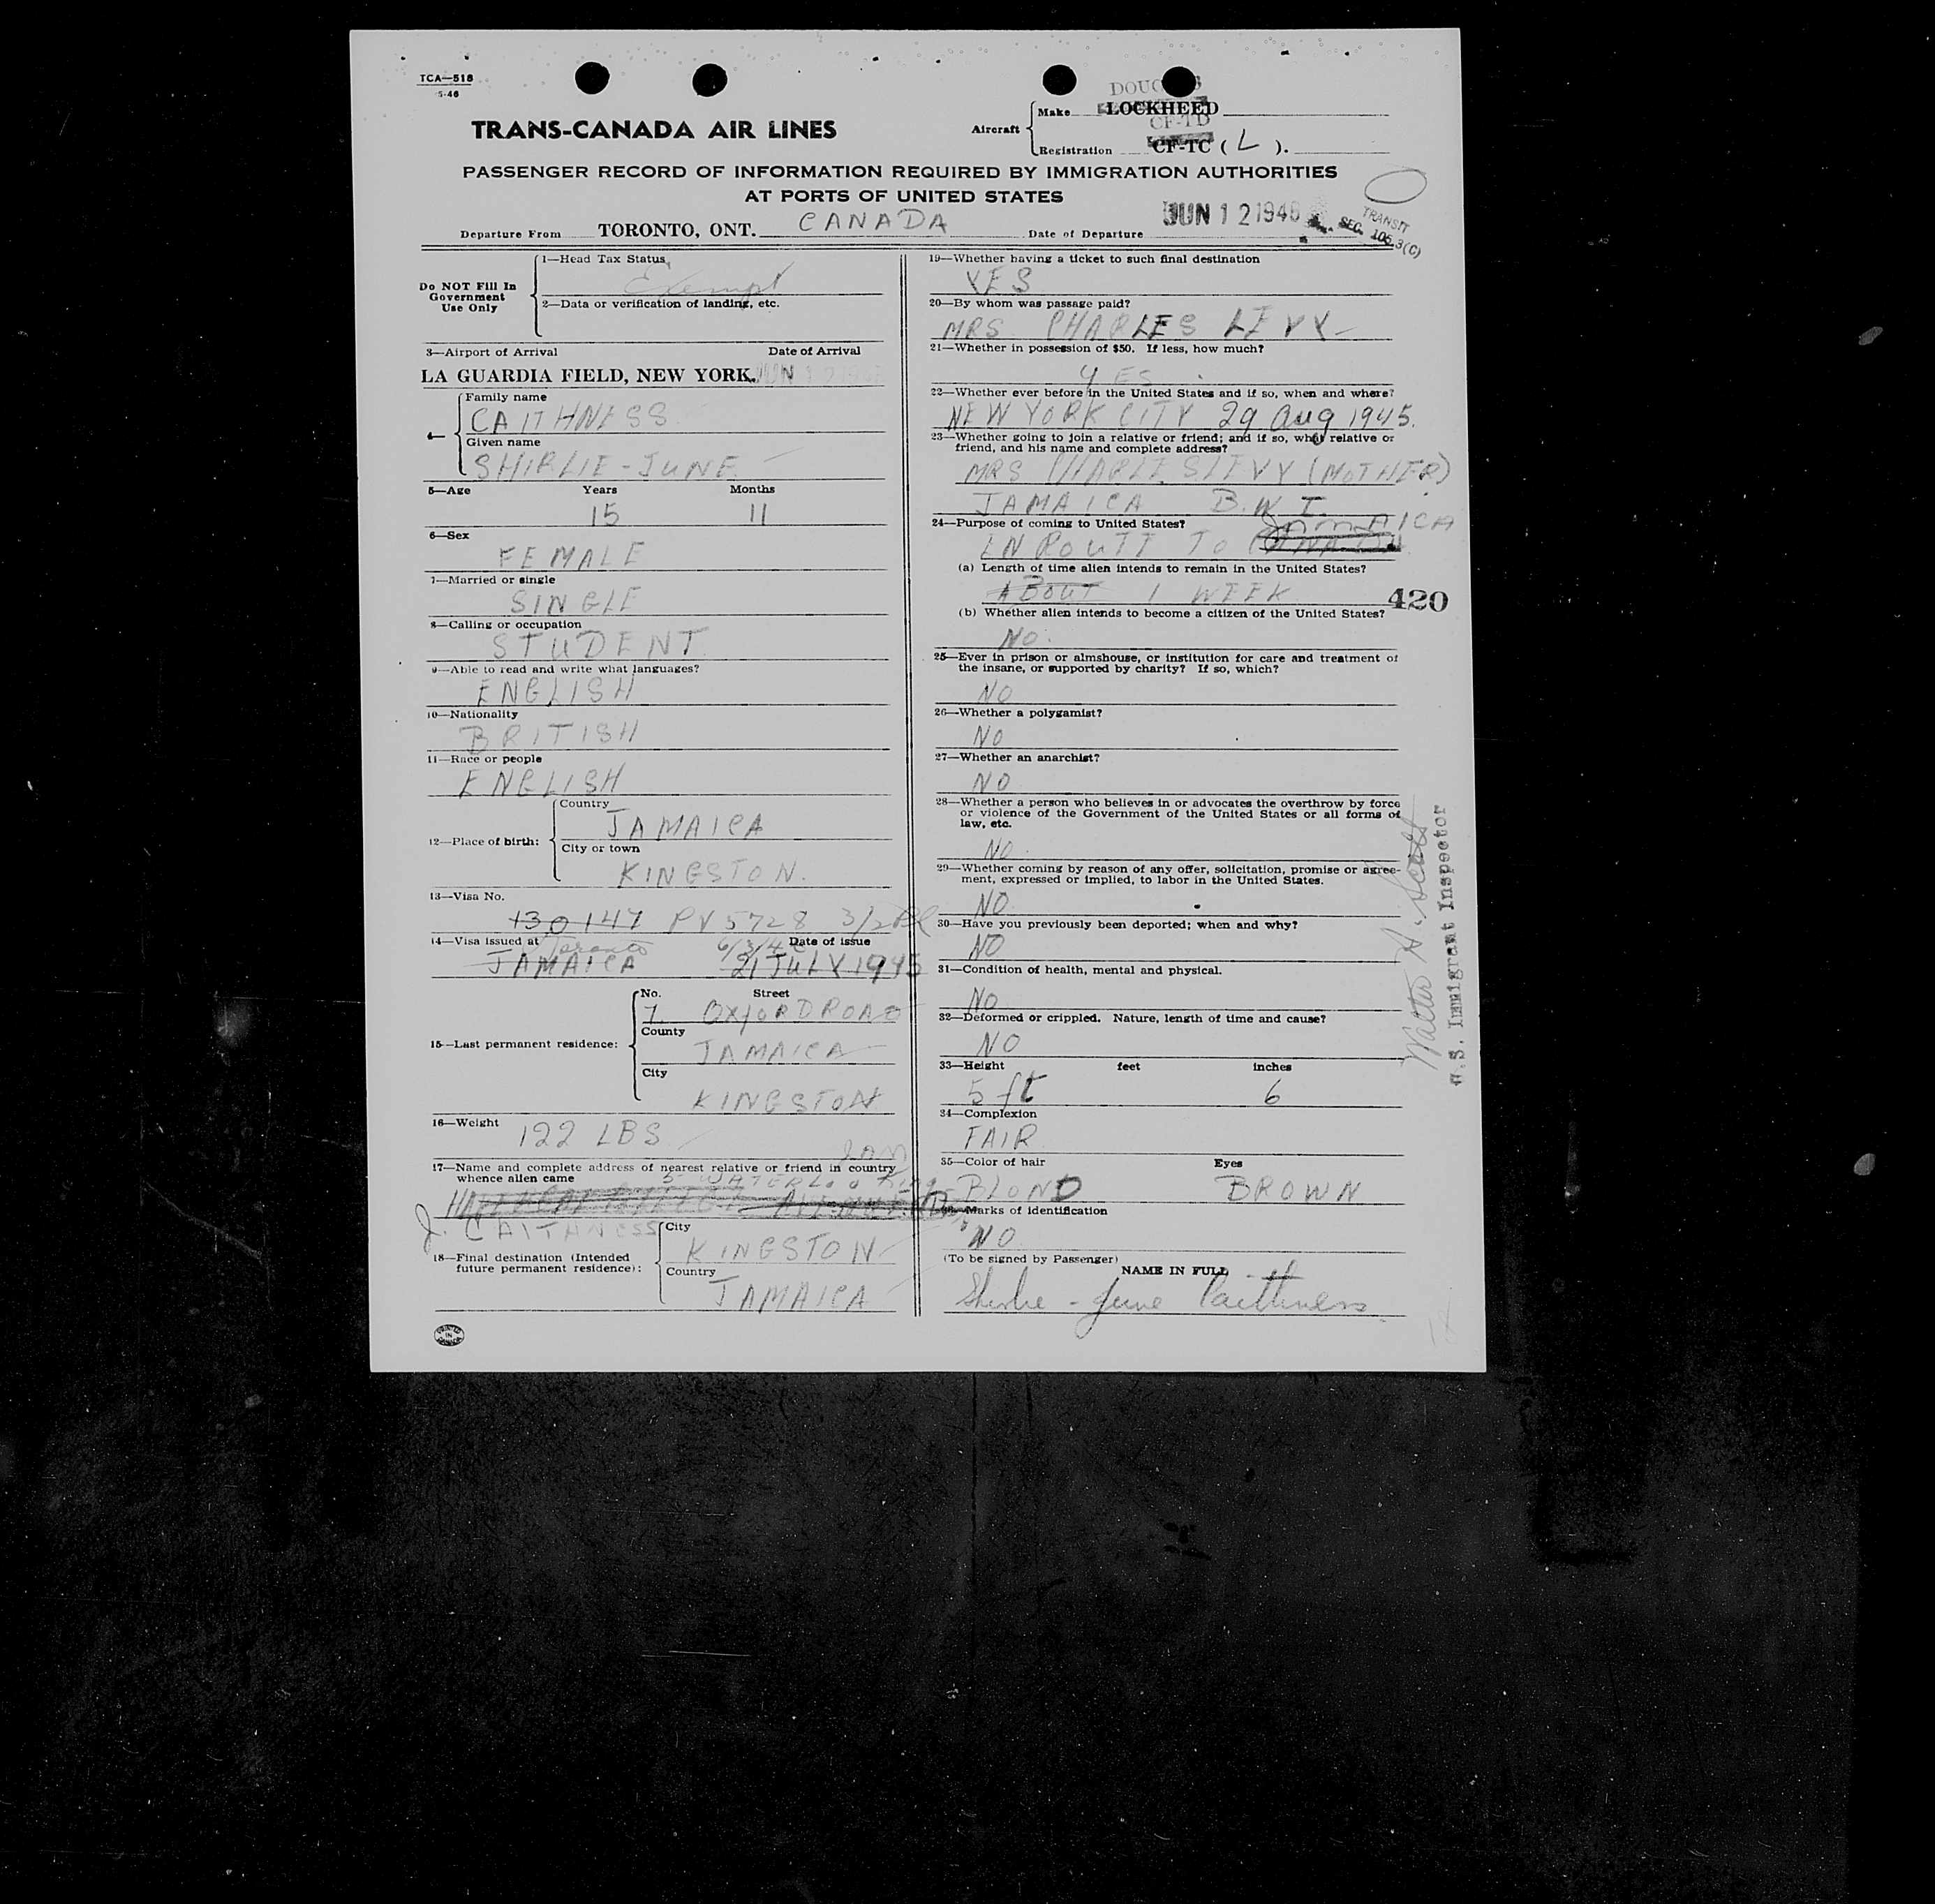 TCA—518
5-46
DOUGLAS
Make LOCKHEED
TRANS-CANADA AIR LINES
Aircraft
CF-TD
Registration CF-TC ( L ).
PASSENGER RECORD OF INFORMATION REQUIRED BY IMMIGRATION AUTHORITIES
AT PORTS OF UNITED STATES
Departure From TORONTO, ONT. CANADA
Date of Departure JUN 12 1946
TRANSIT
SEC. 105.3(C)
Do NOT Fill In
Government
Use Only
1—Head Tax Status
Exempt
2—Data or verification of landing, etc.
3—Airport of Arrival Date of Arrival
LA GUARDIA FIELD, NEW YORK. JUN 12 1946
Family name
CAITHNESS
Given name
SHIRLIE-JUNE
5—Age Years Months
15 11
6—Sex
FEMALE
7—Married or single
SINGLE
8—Calling or occupation
STUDENT
9—Able to read and write what languages?
ENGLISH
10—Nationality
BRITISH
11—Race or people
ENGLISH
12—Place of birth:
Country
JAMAICA
City or town
KINGSTON.
13—Visa No.
130147 PV 5728 3/2
14—Visa issued at Date of issue
Toronto 6/3/46
JAMAICA 21 JULY 1945
15—Last permanent residence:
No. Street
7. OXfORD ROAD
County
JAMAICA
City
KINGSTON
16—Weight
122 LBS
17—Name and complete address of nearest relative or friend in country
whence alien came
5 WATERLOO
J. CAITHNESS
18—Final destination (Intended
future permanent residence):
City
KINGSTON
Country
JAMAICA
PRINTED
IN
CANADA
19—Whether having a ticket to such final destination
YES
20—By whom was passage paid?
MRS CHARLES LEVY
21—Whether in possession of $50. If less, how much?
YES.
22—Whether ever before in the United States and if so, when and where?
NEW YORK CITY 29 Aug 1945.
23—Whether going to join a relative or friend; and if so, what relative or
friend, and his name and complete address?
MRS CHARLES LEVY (MOTHER)
JAMAICA B.W.I.
24—Purpose of coming to United States?
JAMAICA
EN ROUTE TO CANADA
(a) Length of time alien intends to remain in the United States?
ABOUT 1 WEEK
420
(b) Whether alien intends to become a citizen of the United States?
NO.
25—Ever in prison or almshouse, or institution for care and treatment of
the insane, or supported by charity? If so, which?
NO
26—Whether a polygamist?
NO
27—Whether an anarchist?
NO
28—Whether a person who believes in or advocates the overthrow by force
or violence of the Government of the United States or all forms of
law, etc.
NO
29—Whether coming by reason of any offer, solicitation, promise or agree-
ment, expressed or implied, to labor in the United States.
NO
30—Have you previously been deported; when and why?
NO
31—Condition of health, mental and physical.
NO
32—Deformed or crippled. Nature, length of time and cause?
NO
33—Height feet inches
5 ft 6
34—Complexion
FAIR
35—Color of hair Eyes
BLOND BROWN
36—Marks of identification
NO
(To be signed by Passenger)
NAME IN FULL
Shirlie-June Caithness
Walter H. Scott
U.S. Immigrant Inspector